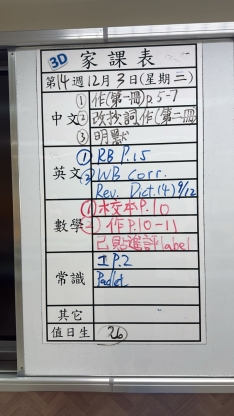 3D 家課表
第14週12月3日(星期二)
中文 ① 作(第一冊)P.5-7
② 改抄詞作(第一冊)
③ 明默
英文 ① RB P.15
② WB corr.
Rev. Dict.(4) 9/12
數學 ① 校本P.10
② 作P.10-11
已貼進評label
常識 工P.2
Padlet
其它
值日生 26